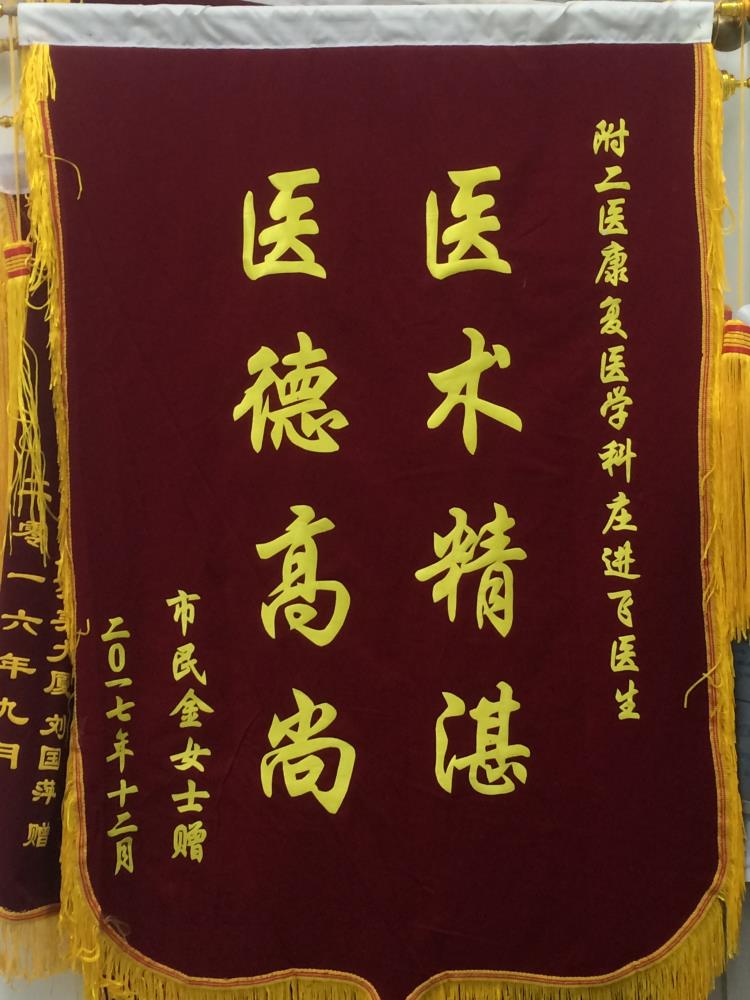 附二医康复医学科庄进飞医生
医术精湛
医德高尚
市民金女士赠
二〇一七年十二月
刘国萍 赠
二零一六年九月